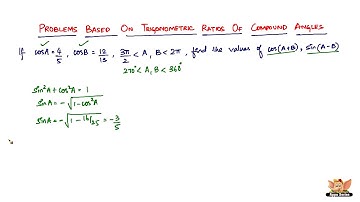 PROBLEMS BASED ON TRIGONOMETRIC RATIOS OF COMPOUND ANGLES
If cosA = 4/5, cosB = 12/13, 3π/2 < A, B < 2π, find the values of cos(A+B), sin(A-B)
270° < A, B < 360°
sin²A + cos²A = 1
sinA = -√(1-cos²A)
sinA = -√(1 - 16/25) = -3/5